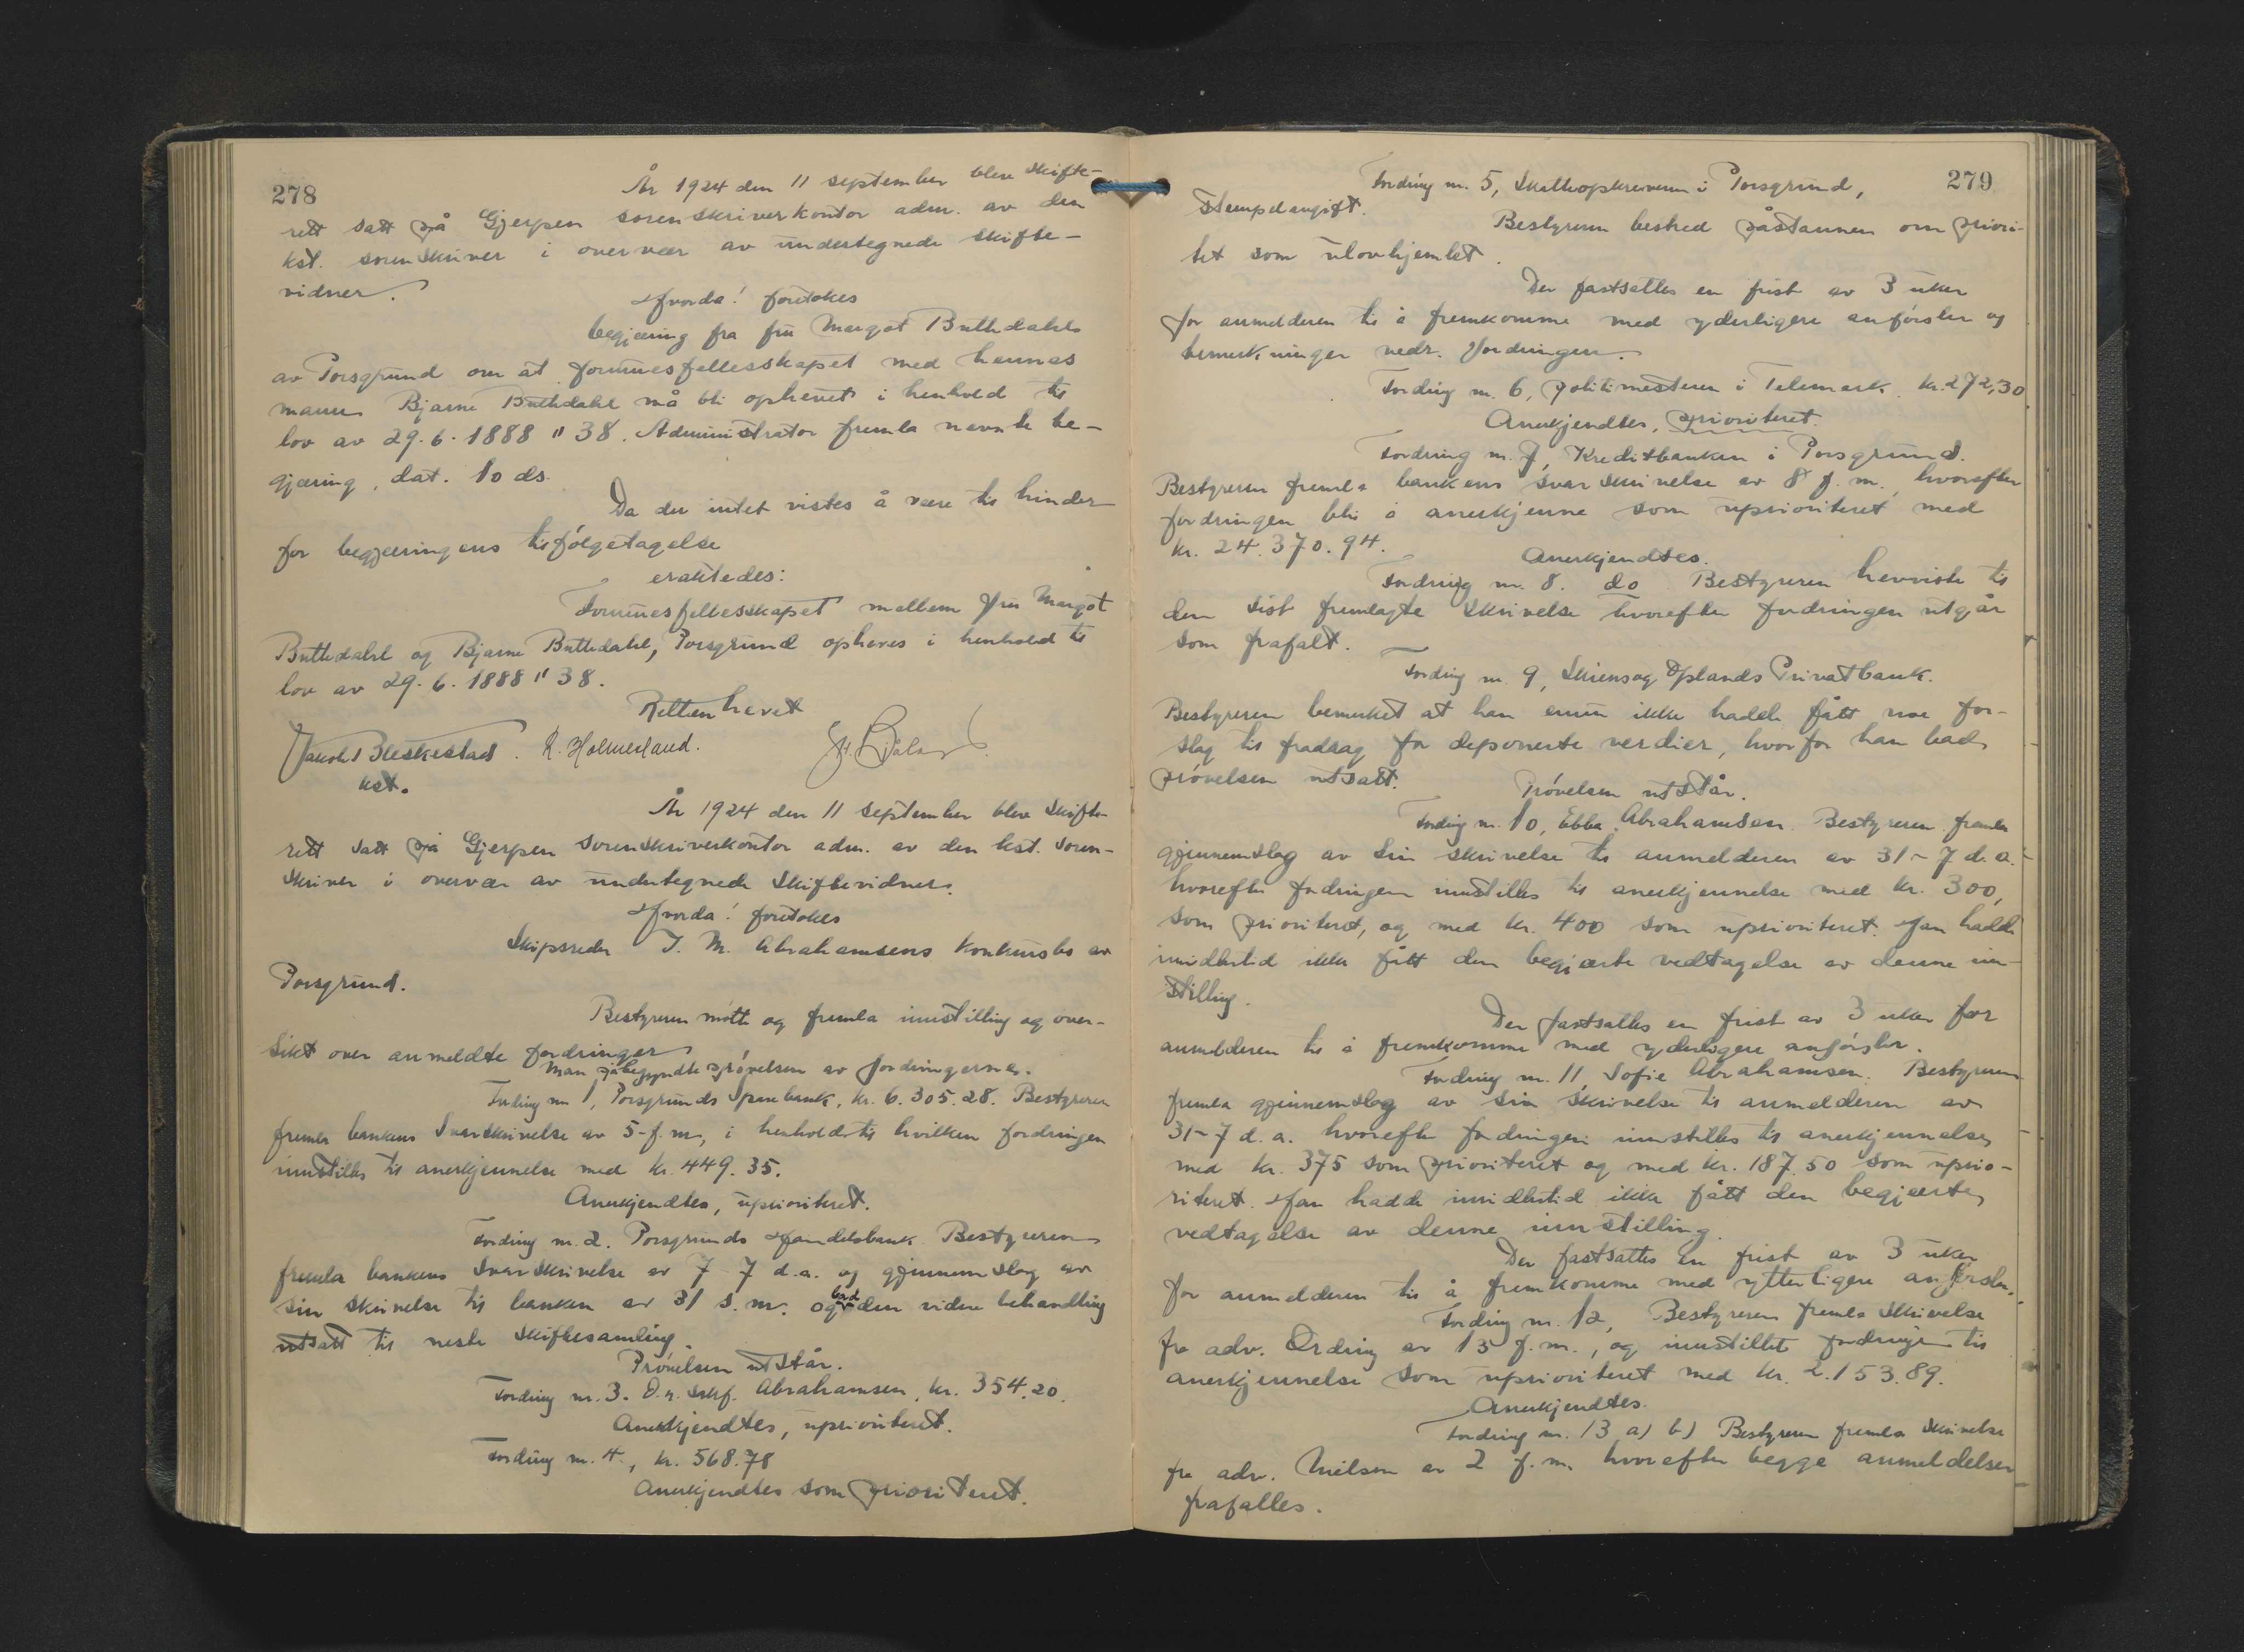 278
År 1924 den 11 september blev skifte-
rett satt på Gjerpen sorenskriverkontor adm. av den
kst. sorenskriver i overvær av undertegnede skifte-
vidner.
Hvorda! foretokes
begjæring fra fru Margot Buttedahl
av Porsgrund om at formuesfellesskapet med hennes
mann Bjarne Buttedahl må bli ophevet i henhold til
lov av 29.6.1888 " 38. Administrator fremla nevnte be-
gjæring, dat. 10 ds.
Da der intet vistes å være til hinder
for begjæringens tilfølgetagelse
eraktedes:
Formuesfellesskapet mellem fru Margot
Buttedahl og Bjarne Buttedahl, Porsgrund opheves i henhold til
lov av 29.6.1888 " 38.
Retten hevet
Jakob Bleskestad. K. Holmerland.
kst.
År 1924 den 11 september blev skifte-
rett satt på Gjerpen sorenskriverkontor adm. av den kst. soren-
skriver i overvær av undertegnede skiftevidner.
Hvorda! foretokes
Skipsreder J. M. Abrahamsens konkursbo av
Porsgrund.
Bestyreren møtte og fremla innstilling og over-
sikt over anmeldte fordringer
Man påbegyndte prøvelsen av fordringerne.
Fordring nr 1, Porsgrunds Sparebank, kr. 6.305.28. Bestyreren
fremla bankens svarskrivelse av 5 f.m., i henhold til hvilken fordringen
innstilles til anerkjennelse med kr. 449.35.
Anerkjendtes, uprioritert.
Fordring nr. 2. Porsgrunds Handelsbank. Bestyreren
fremla bankens svarskrivelse av 7-7 d.a. og gjennemslag av
sin skrivelse til banken av 31 s.m. og bad den videre behandling
utsatt til neste skiftesamling.
Prøvelsen utstår.
Fordring nr. 3. O.r. sakf. Abrahamsen, kr. 354.20.
Anerkjendtes, uprioriteret.
Fordring nr. 4., kr. 568.78
Anerkjendtes som prioriteret.
279
Fordring nr. 5, Skatteopkreveren i Porsgrund,
Stempelavgift.
Bestyreren bestred påstannen om priori-
tet som ulovhjemlet.
Der fastsattes en frist av 3 uker
for anmelderen til å fremkomme med yderligere anførsler og
bemerkninger vedr. fordringen.
Fordring nr. 6, politimesteren i Telemark. kr. 272,30
Anerkjendtes, prioriteret.
Fordring nr. 7, Kreditbanken i Porsgrund.
Bestyreren fremla bankens svarskrivelse av 8 f.m., hvorefter
fordringen blir å anerkjenne som uprioriteret med
kr. 24.370.94.
Anerkjendtes.
Fordring nr. 8. do Bestyreren henviste til
den sist fremlagte skrivelse hvorefter fordringen utgår
som frafalt.
Fordring nr. 9, Skiens og Oplands Privatbank.
Bestyreren bemerket at han ennu ikke hadde fått noe for-
slag til fradrag for deponerte verdier, hvorfor han bad
prøvelsen utsatt.
Prøvelsen utstår.
Fordring nr. 10, Ebba Abrahamsen. Bestyreren fremla
gjennemslag av sin skrivelse til anmelderen av 31-7 d.a.
hvorefter fordringen innstilles til anerkjennelse med kr. 300,
som prioriteret, og med kr. 400 som uprioriteret. Han hadde
imidlertid ikke fått den begjærte vedtagelse av denne inn-
stilling.
Der fastsattes en frist av 3 uker for
anmelderen til å fremkomme med yderligere anførsler.
Fordring nr. 11, Sofie Abrahamsen. Bestyreren
fremla gjennemslag av sin skrivelse til anmelderen av
31-7 d.a. hvorefter fordringen innstilles til anerkjennelse
med kr. 375 som prioriteret og med kr. 187.50 som uprio-
riteret. Han hadde imidlertid ikke fått den begjærte
vedtagelse av denne innstilling.
Der fastsattes en frist av 3 uker
for anmelderen til å fremkomme med ytterligere anførsler.
Fordring nr. 12, Bestyreren fremla skrivelse
fra adv. Ording av 13 f.m., og innstillet fordringen til
anerkjennelse som uprioriteret med kr. 2.153.89.
Anerkjendtes.
Fordring nr. 13 a) b) Bestyreren fremla skrivelse
fra adv. Nielsen av 2 f.m. hvorefter begge anmeldelser
frafalles.